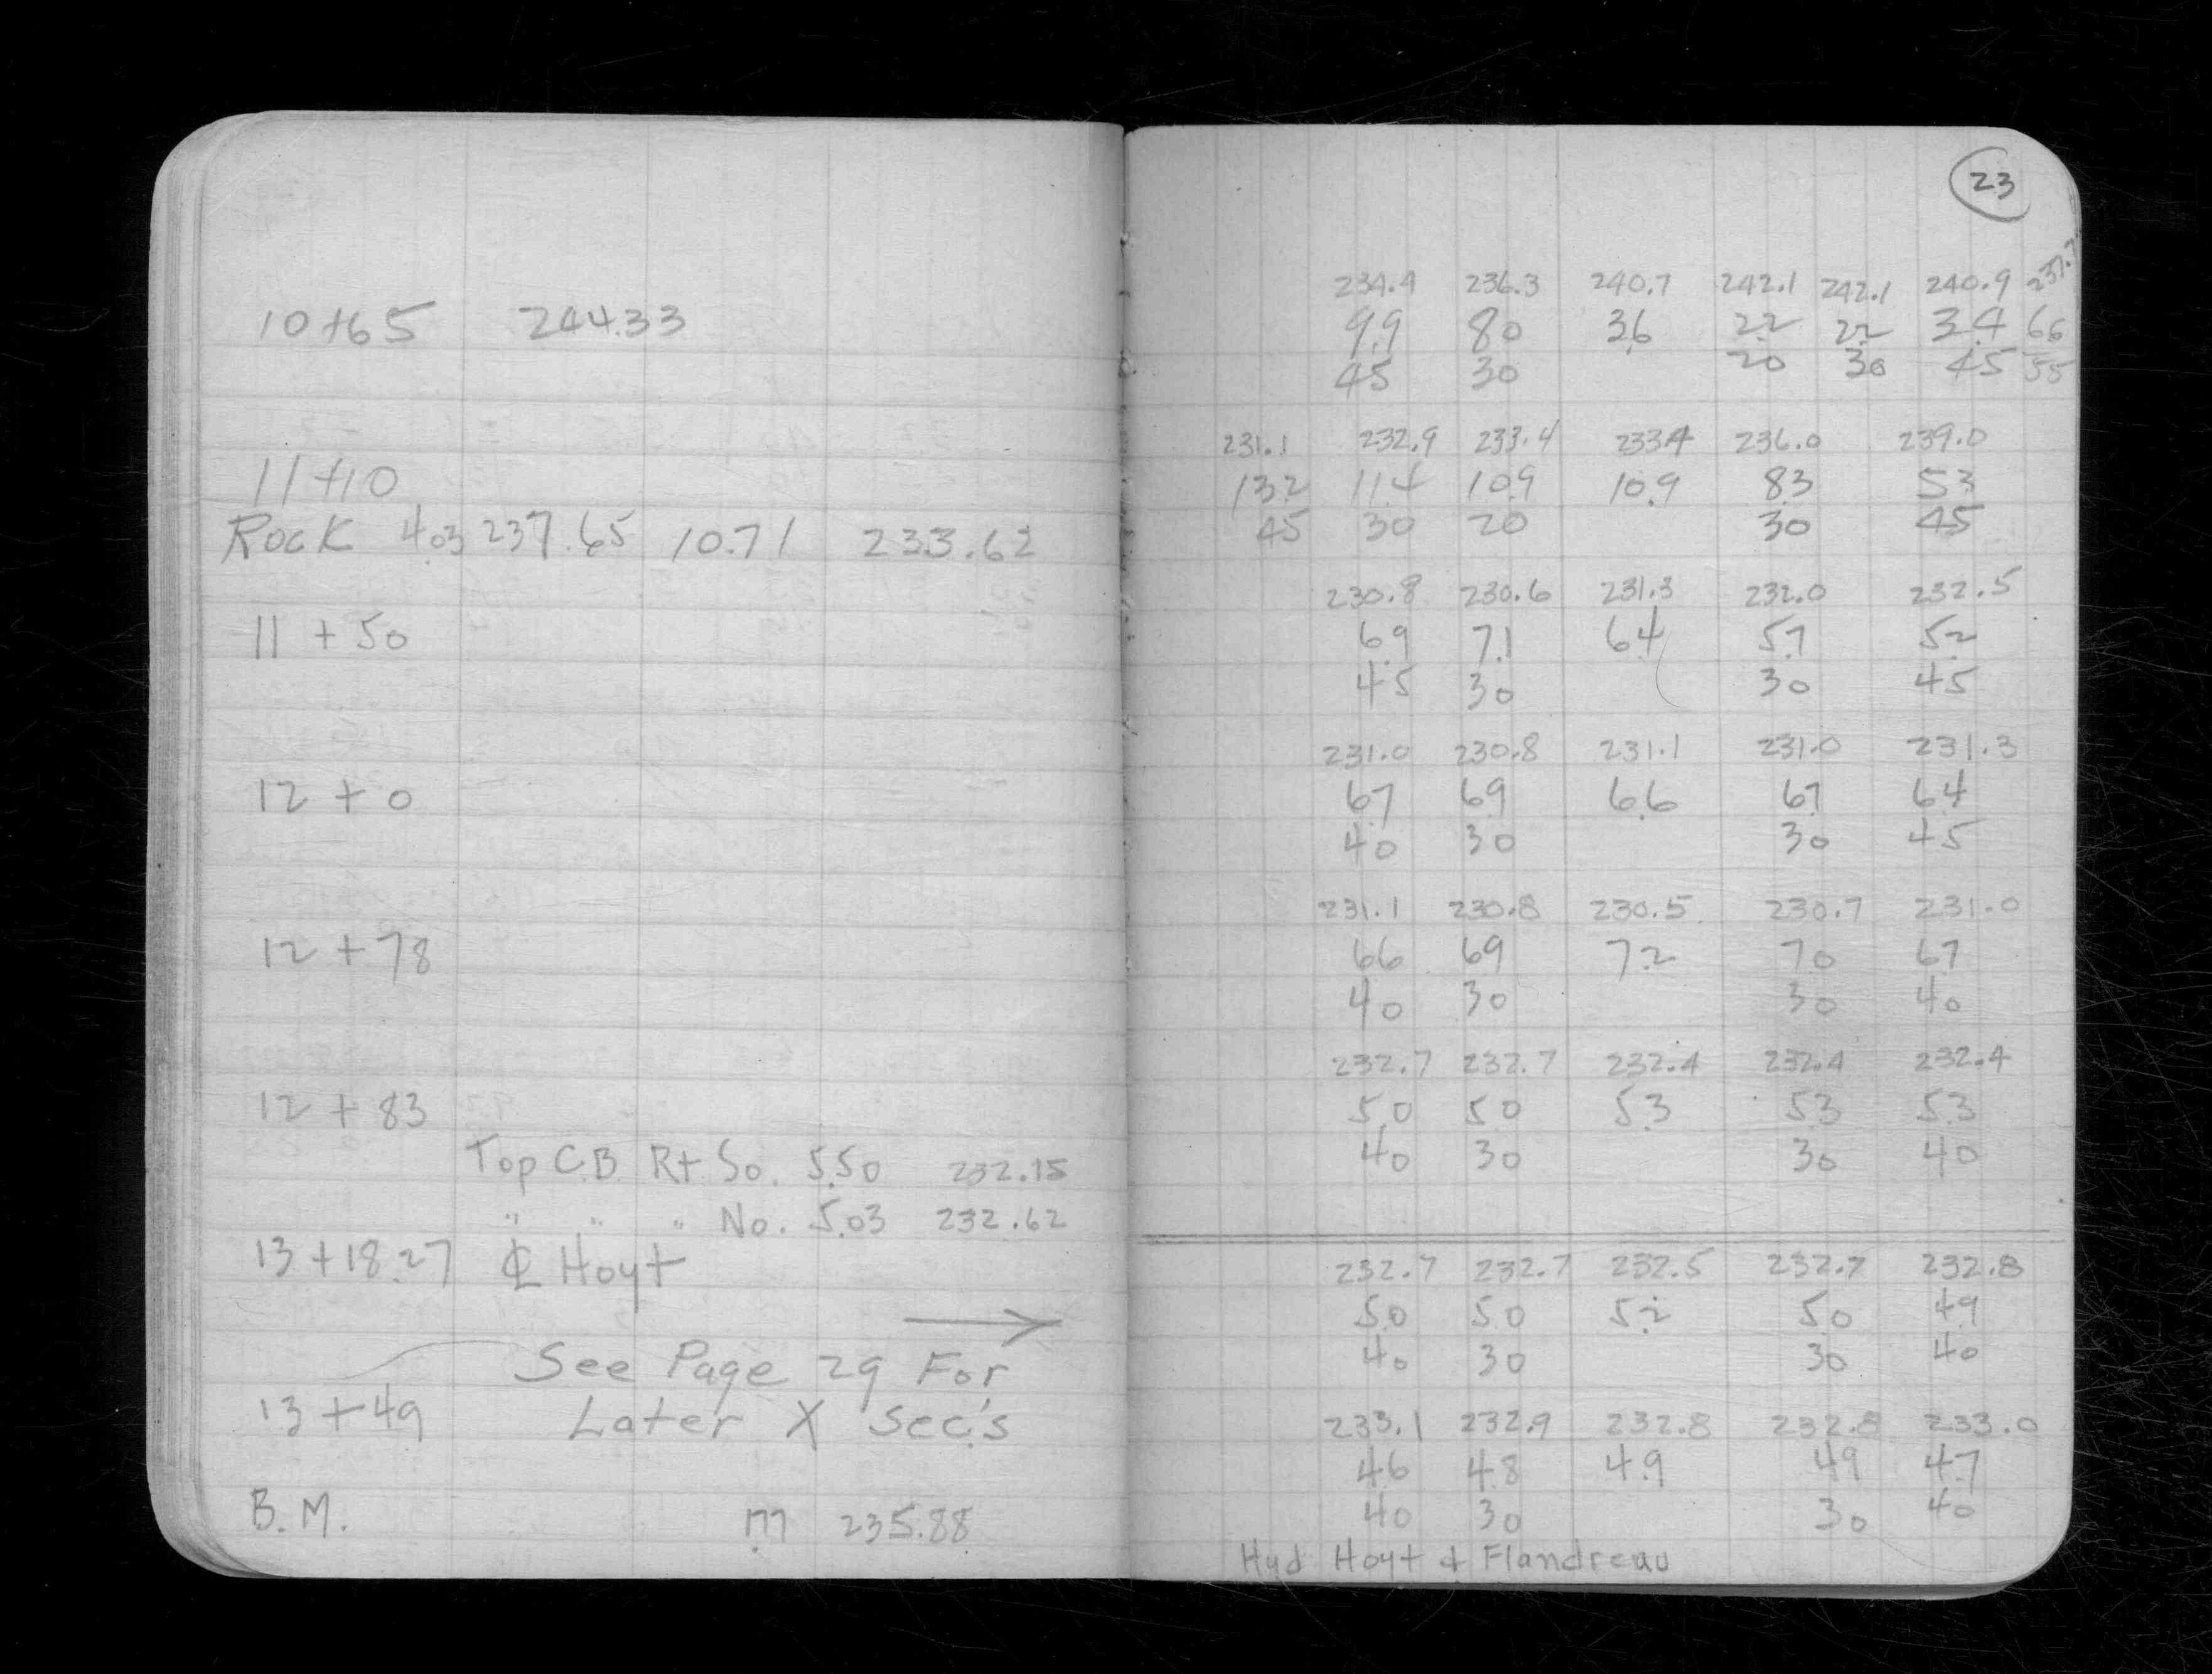 10+65 244.33
11+10
Rock 4.03 237.65 10.71 233.62
11 + 50
12 + 0
12 + 78
12 + 83
Top C.B. Rt. So. 5.50 232.15
" " " No. 5.03 232.62
13 + 18.27 ℄ Hoyt
See Page 29 For
13 + 49 Later X Sec's
B.M. 1.77 235.88
23
234.4 236.3 240.7 242.1 242.1 240.9 237.7
9.9 8.0 3.6 2.2 2.2 3.4 6.6
45 30 20 30 45 55
231.1 232.9 233.4 233.4 236.0 239.0
13.2 11.4 10.9 10.9 8.3 5.3
45 30 20 30 45
230.8 230.6 231.3 232.0 232.5
6.9 7.1 6.4 5.7 5.2
45 30 30 45
231.0 230.8 231.1 231.0 231.3
6.7 6.9 6.6 6.7 6.4
40 30 30 45
231.1 230.8 230.5 230.7 231.0
6.6 6.9 7.2 7.0 6.7
40 30 30 40
232.7 232.7 232.4 232.4 232.4
5.0 5.0 5.3 5.3 5.3
40 30 30 40
232.7 232.7 232.5 232.7 232.8
5.0 5.0 5.2 5.0 4.9
40 30 30 40
233.1 232.9 232.8 232.8 233.0
4.6 4.8 4.9 4.9 4.7
40 30 30 40
Hyd Hoyt & Flandreau